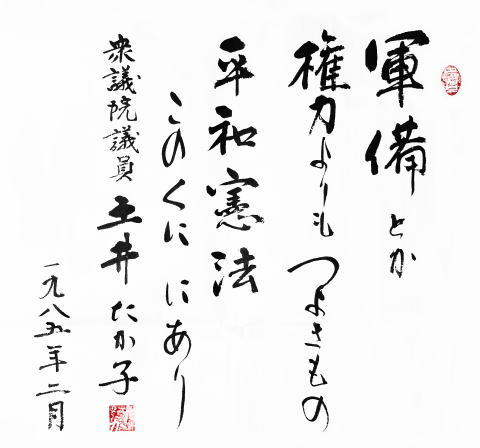 軍備とか
権力よりもつよきもの
平和憲法
このくににあり
衆議院議員 土井たか子
一九八五年二月